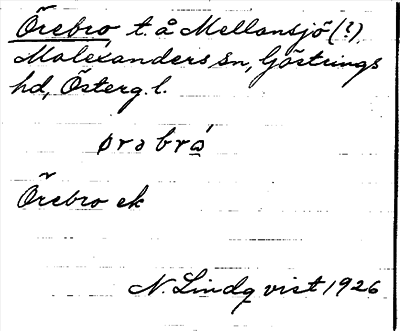 Örebro t. å Mellansjö (?),
Malexanders sn, Göstrings
hd, Österg. l.
ørəbrá̱
Örebro ek
N. Lindqvist 1926